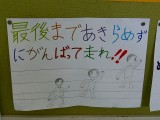 最後まであきらめず
にがんばって走れ!!